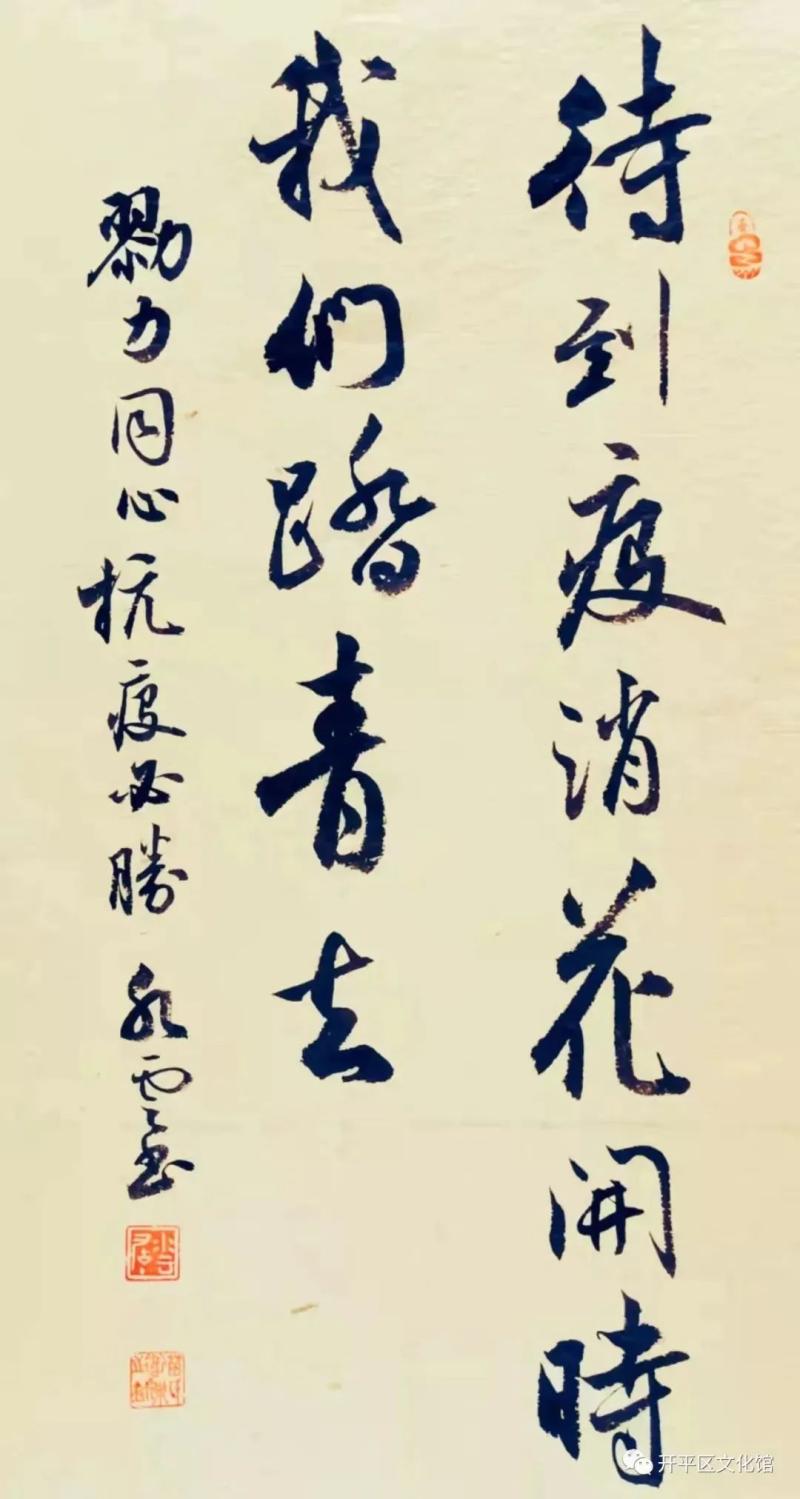 待到疫消花開時
我們踏青去
勠力同心抗疫必勝 水雲書
开平区文化馆